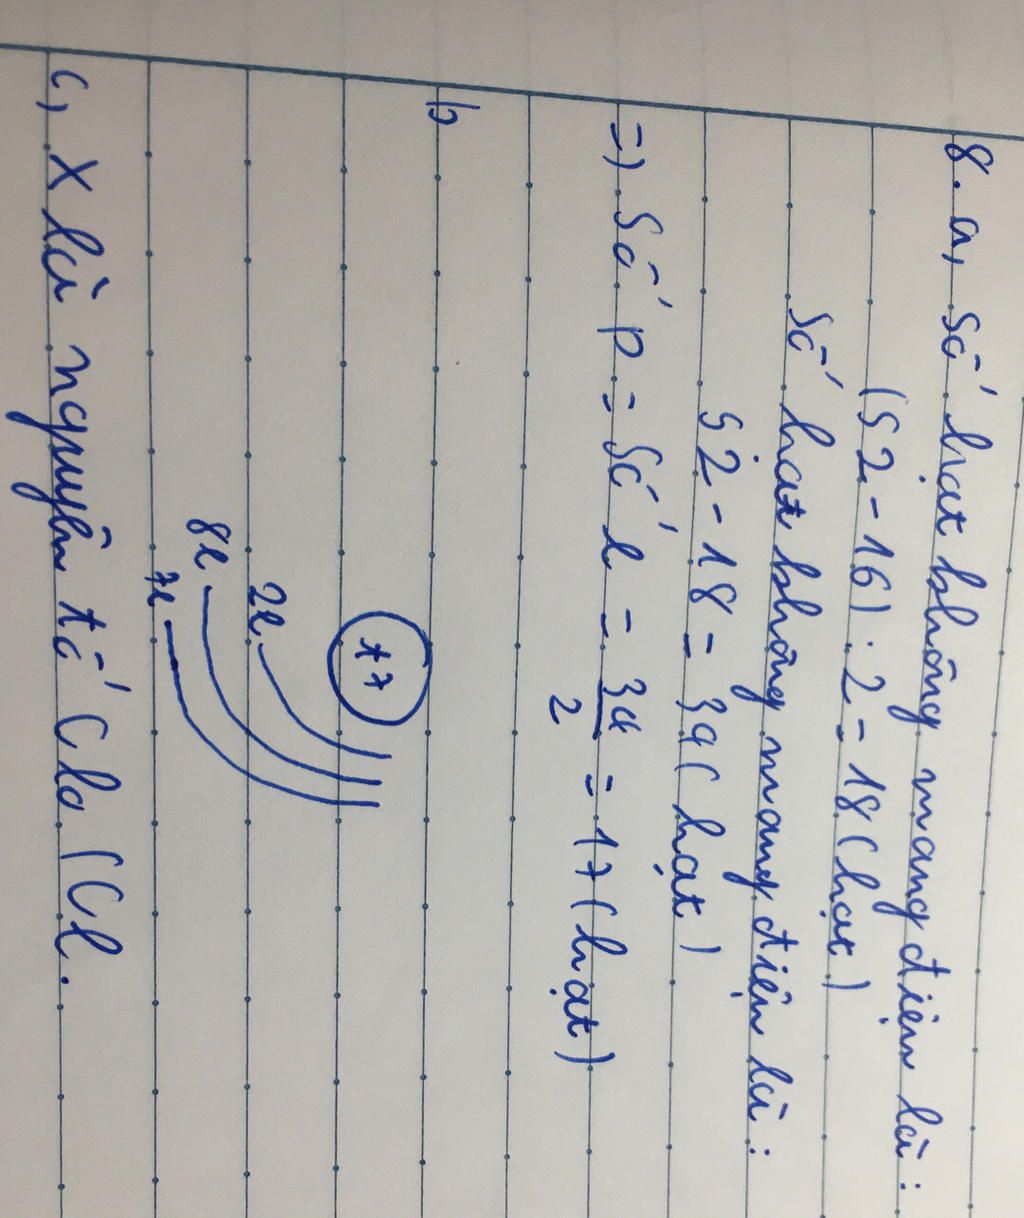 8. a, Số hạt không mang điện là:
(52 - 16) : 2 = 18 (hạt)
Số hạt không mang điện là:
52 - 18 = 34 (hạt)
=) Số p = Số e = 34/2 = 17 (hạt)
b
17
2e
8e
7e
c, X là nguyên tố Clo (Cl.